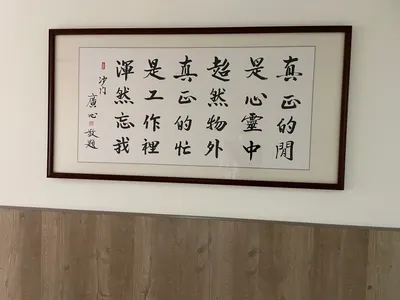 真正的閒
是心靈中
超然物外
真正的忙
是工作裡
渾然忘我
沙門
廣心敬題